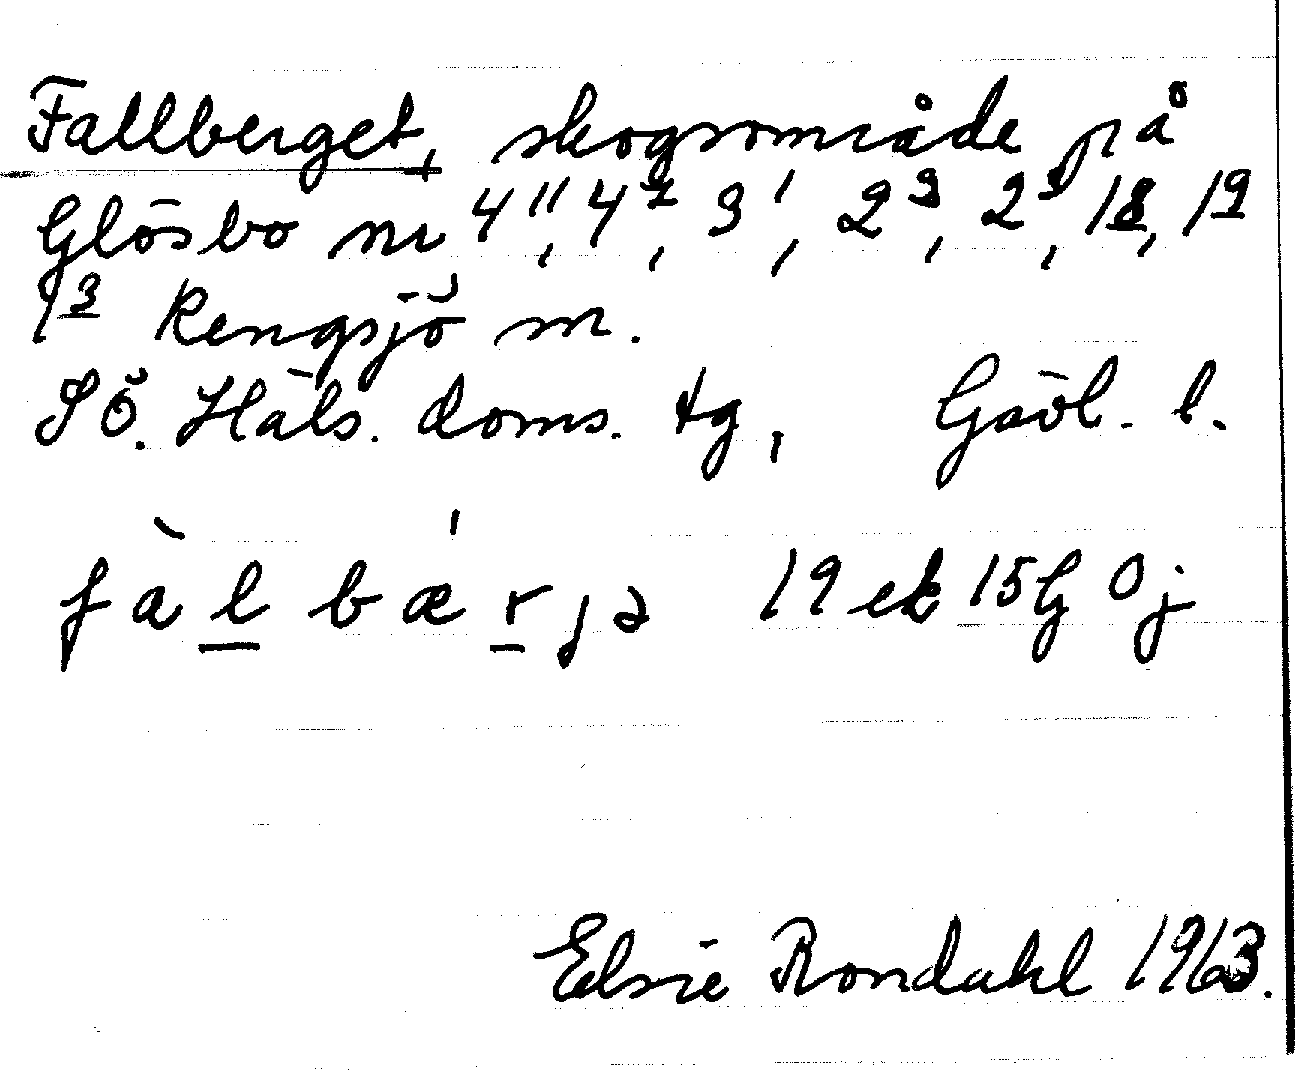 Fallberget, skogsområde på
Glösbo nr 4¹¹, 4², 3¹, 2³, 2⁵, 1⁸, 1⁹
1³ Rengsjö sn.
SÖ. Häls. doms. tg, Gävl. l.
fàl bǽrjə 19 ek 15G Oj
Elsie Rondahl 1963.